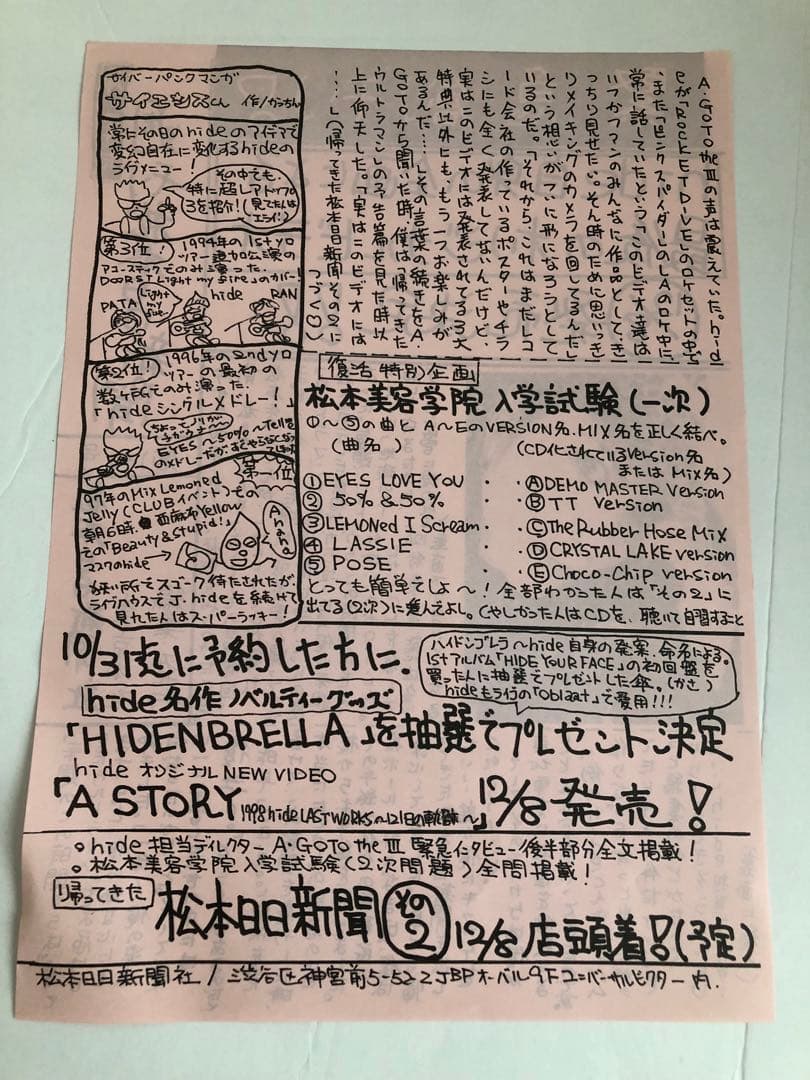 A・GOTO the Ⅲの声は震えていた。hid
eが「ROCKET DIVE」のロケセットの中で
、また「ピンクスパイダー」のLAのロケ中に、
常に話していたという「このビデオ達は
いつかファンのみんなに作品として、き
っちり見せたい。そん時のために思いっき
りメイキングのカメラを回してるんだ」
という想いがついに形になろうとして
いるのだ。「それから、これはまだレコ
ード会社の作っているポスターやチラ
シにも全く発表してないんだけど、
実はこのビデオには発表されてる3大
特典以外にも、もう一つお楽しみが
あるんだ…。」その言葉の続きをA.
GOTOから聞いた時、僕は「帰ってきた
ウルトラマン」の予告篇を見た時以
上に仰天した。「実はこのビデオには
…。」(帰ってきた松本日日新聞その2に
つづく♡)
サイバーパンクマンガ
サイエンスくん 作/かっちん
常にその日のhideのアイデアで
変幻自在に変化するhideの
ライヴメニュー!
その中でも、
特に超レアトップ
3を紹介!(見てた人は
エライ)
第3位!
1994年の1stソロ
ツアー追加公演の
アコースティックでのみ演った
DOORS「Light my fire」のカバー!
Light
my
fire
PATA
hide
RAN
第2位!
1996年の2ndソロ
ツアーの最初の
数ヶ所でのみ演った
「hideシングルメドレー!」
EYES〜50%〜TELL
第一位
97年のMix Lemoned
Jelly(CLUBイベント)その
朝6時、西麻布Yellow
その「Beauty & Stupid!」
マスクのhide
狭い所でスゴーク待たされたが、
ライヴハウスでJ・hideを続けて
見れた人はスーパーラッキー!
復活特別企画
松本美容学院入学試験(一次)
①〜⑤の曲とA〜EのVERSION名、MIX名を正しく結べ。
(曲名)
(CD化されているversion名
またはMix名)
①EYES LOVE YOU ・ ・ⒶDEMO MASTER Version
② 50% & 50% ・ ・ⒷTT Version
③LEMONed I Scream ・ ・ⒸThe Rubber Hose Mix
④ LASSIE ・ ・ⒹCRYSTAL LAKE version
⑤ POSE ・ ・ⒺChoco-Chip version
とっても簡単でしょ〜!全部わかった人は「その2」に
出てる(2次)に進んでよし。くやしかった人はCDを、聴いて自習すること
10/31迄に予約した方に、
hide名作ノベルティーグッズ
「HIDENBRELLA」を抽選でプレゼント決定
ハイドンブレラ〜hide自身の発案、命名による。
1stアルバム「HIDE YOUR FACE」の初回盤を
買った人に抽選でプレゼントした傘。(かさ)
hideもライヴの「oblaat」で愛用!!!
hide オリジナル NEW VIDEO
「A STORY 1998 hide LAST WORKS〜121日の軌跡〜」12/8発売!
○hide担当ディレクターA・GOTO the Ⅲ 緊急インタビュー後半部分全文掲載!
○松本美容学院入学試験(2次問題)全問掲載!
帰ってきた 松本日日新聞 その2 12/8店頭着!(予定)
松本日日新聞社/渋谷区神宮前5-52-2 JBPオーバル9Fユニバーサルビクター内.